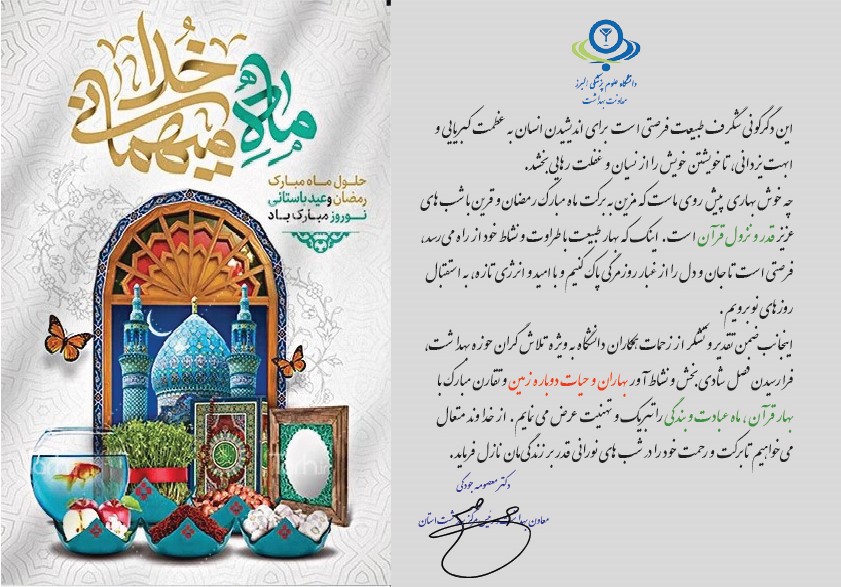 ماه میهمانی خدا
حلول ماه مبارک
رمضان و عید باستانی
نوروز مبارک باد
دانشگاه علوم پزشکی البرز
معاونت بهداشت
این دگرگونی شگرف طبیعت فرصتی است برای اندیشیدن انسان به عظمت کبریایی و
ابهت یزدانی، تا خویشتن خویش را از نسیان و غفلت رهایی بخشد.
چه خوش بهاری پیش روی ماست که مزین به برکت ماه مبارک رمضان و قرین با شب های
عزیز قدر و نزول قرآن است. اینک که بهار طبیعت با طراوت و نشاط خود از راه می رسد،
فرصتی است تا جان و دل را از غبار روزمرگی پاک کنیم و با امید و انرژی تازه، به استقبال
روزهای نو برویم.
اینجانب ضمن تقدیر و تشکر از زحمات همکاران دانشگاه به ویژه تلاش گران حوزه بهداشت،
فرارسیدن فصل شادی بخش و نشاط آور بهاران و حیات دوباره زمین و تقارن مبارک با
بهار قرآن، ماه عبادت و بندگی را تبریک و تهنیت عرض می نمایم. از خداوند متعال
می خواهیم تا برکت و رحمت خود را در شب های نورانی قدر بر زندگی مان نازل فرماید.
دکتر معصومه جودکی
معاون بهداشت استان